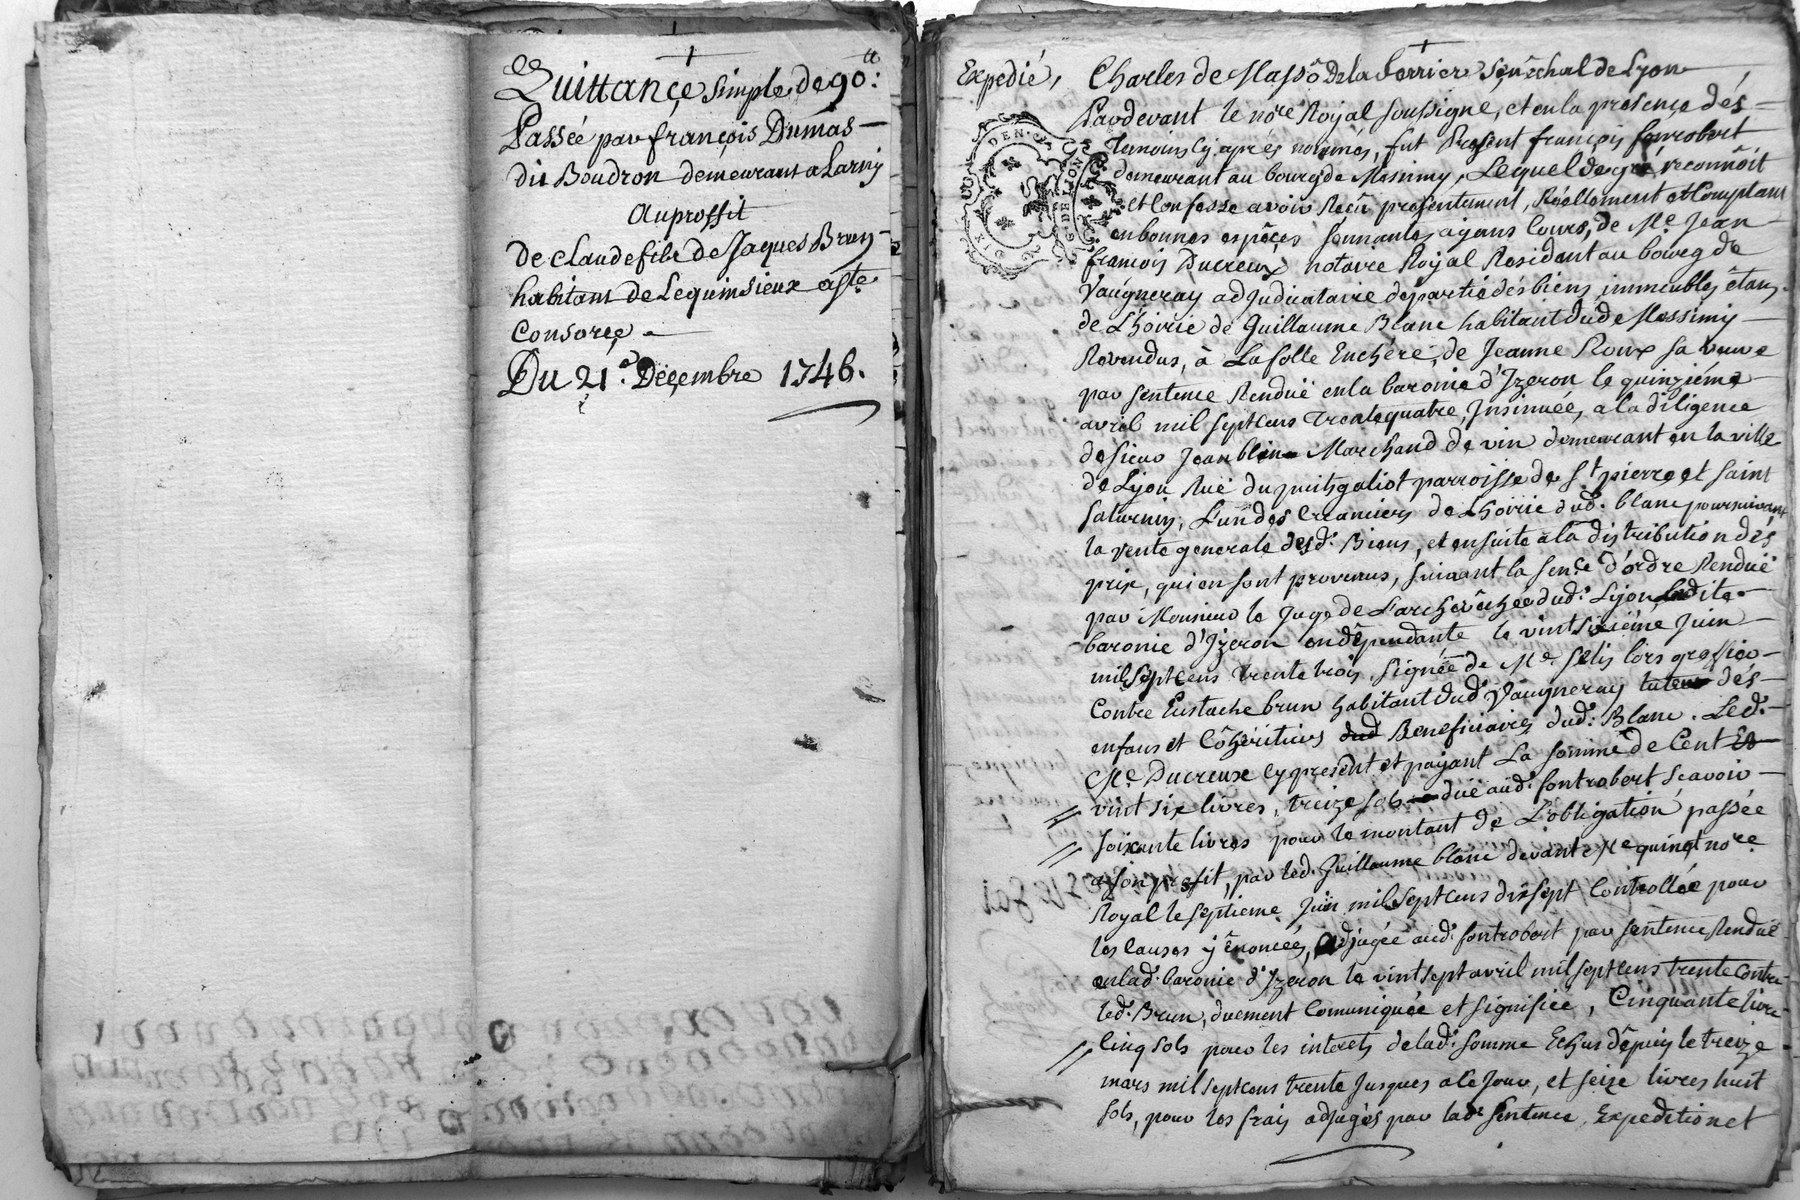 Quittance simple de 90.tt
Passée par françois Dumas
dit Boudron demeurant a Larny
Auproffit
de claude fils de Jaques Brun
habitant de Lequinsieux aste
Consorce
Du 21.e Decembre 1746.
Expedié,
Charles de Masso Dela ferriere senêchal de Lyon
Pardevant le no.re Royal soussigne, et en la presence des
temoins cy après nommés, fut Present françois fontrobert
demeurant au bourg de Messimy, Lequel de gré reconnôit
et Confesse avoir Reçu presentement, Réellement et Comptant
en bonnes espêces sonnantes ayans Cours, de M.e Jean
françois Ducreux notaire Royal Resident au bourg de
Vaugneray adjudicataire de partie des biens immeubles étans
de L'hoirie de Guillaume Blanc habitant dud. de Messimy
Revendus, à La folle Enchére, de Jeanne Roux sa veuve
par sentence Renduë en la baronie d'Izeron le quinziéme
avril mil sept cens trente quatre, Insinuée, a la diligence
de sieur Jean blein Marchand de vin demeurant en la ville
de Lyon Ruë du puits galiot parroisse de S.t pierre et saint
saturnin, L'un des Creanciers de L'hoirie dud. blanc poursuivant
la vente generale desd. Biens, et ensuite à la distribution des
prix, qui en sont provenus, suivant la sen.ce d'ordre Renduë
par Monsieur le Juge de L'archevêchée dud. Lyon, ladite
baronie d'Izeron en dépendante le vintsixiéme Juin
mil sept cens trente trois, signée de M.e lors greffier
Contre Eustache brun habitant dud. Vaugneray tuteur des
enfans et Cohéritiers dud Beneficiaires dud. Blanc. Led.
M.e Ducreux cy present et payant La somme de Cent
vint six livres, treize sols duë aud. fontrobert Scavoir
soixante livres pour le montant de L'obligation passée
a son profit, par led. Guillaume blanc devant M.e quinet no.re
Royal le septieme Juin mil sept cens dixsept Controllée pour
les causes y énoncées, adjugée aud. fontrobert par sentence Renduë
en lad. baronie d'Izeron le vint sept avril mil sept cens trente contre
led. Brun, duement Comuniquée et signifiée, Cinquante livres
Cinq sols pour les interets de lad. somme Echus dépuis le treize
mars mil sept cens trente Jusques a ce Jour, et seize livres huit
sols, pour les frais adjugés par lad. sentence, Expedition et